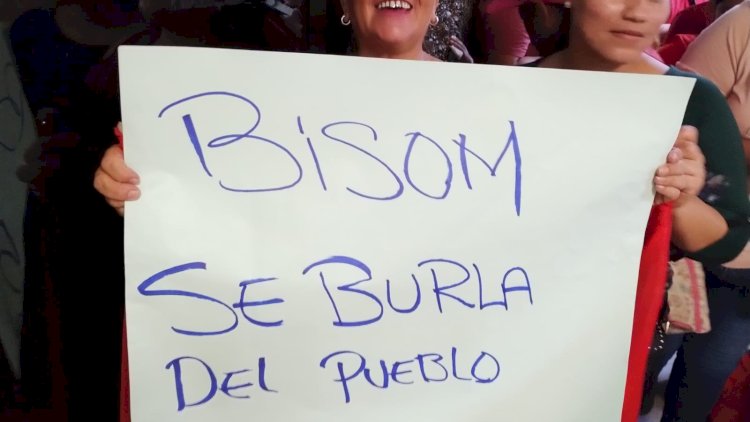 BiSOM
SE BURLA
DEL PUEBLO